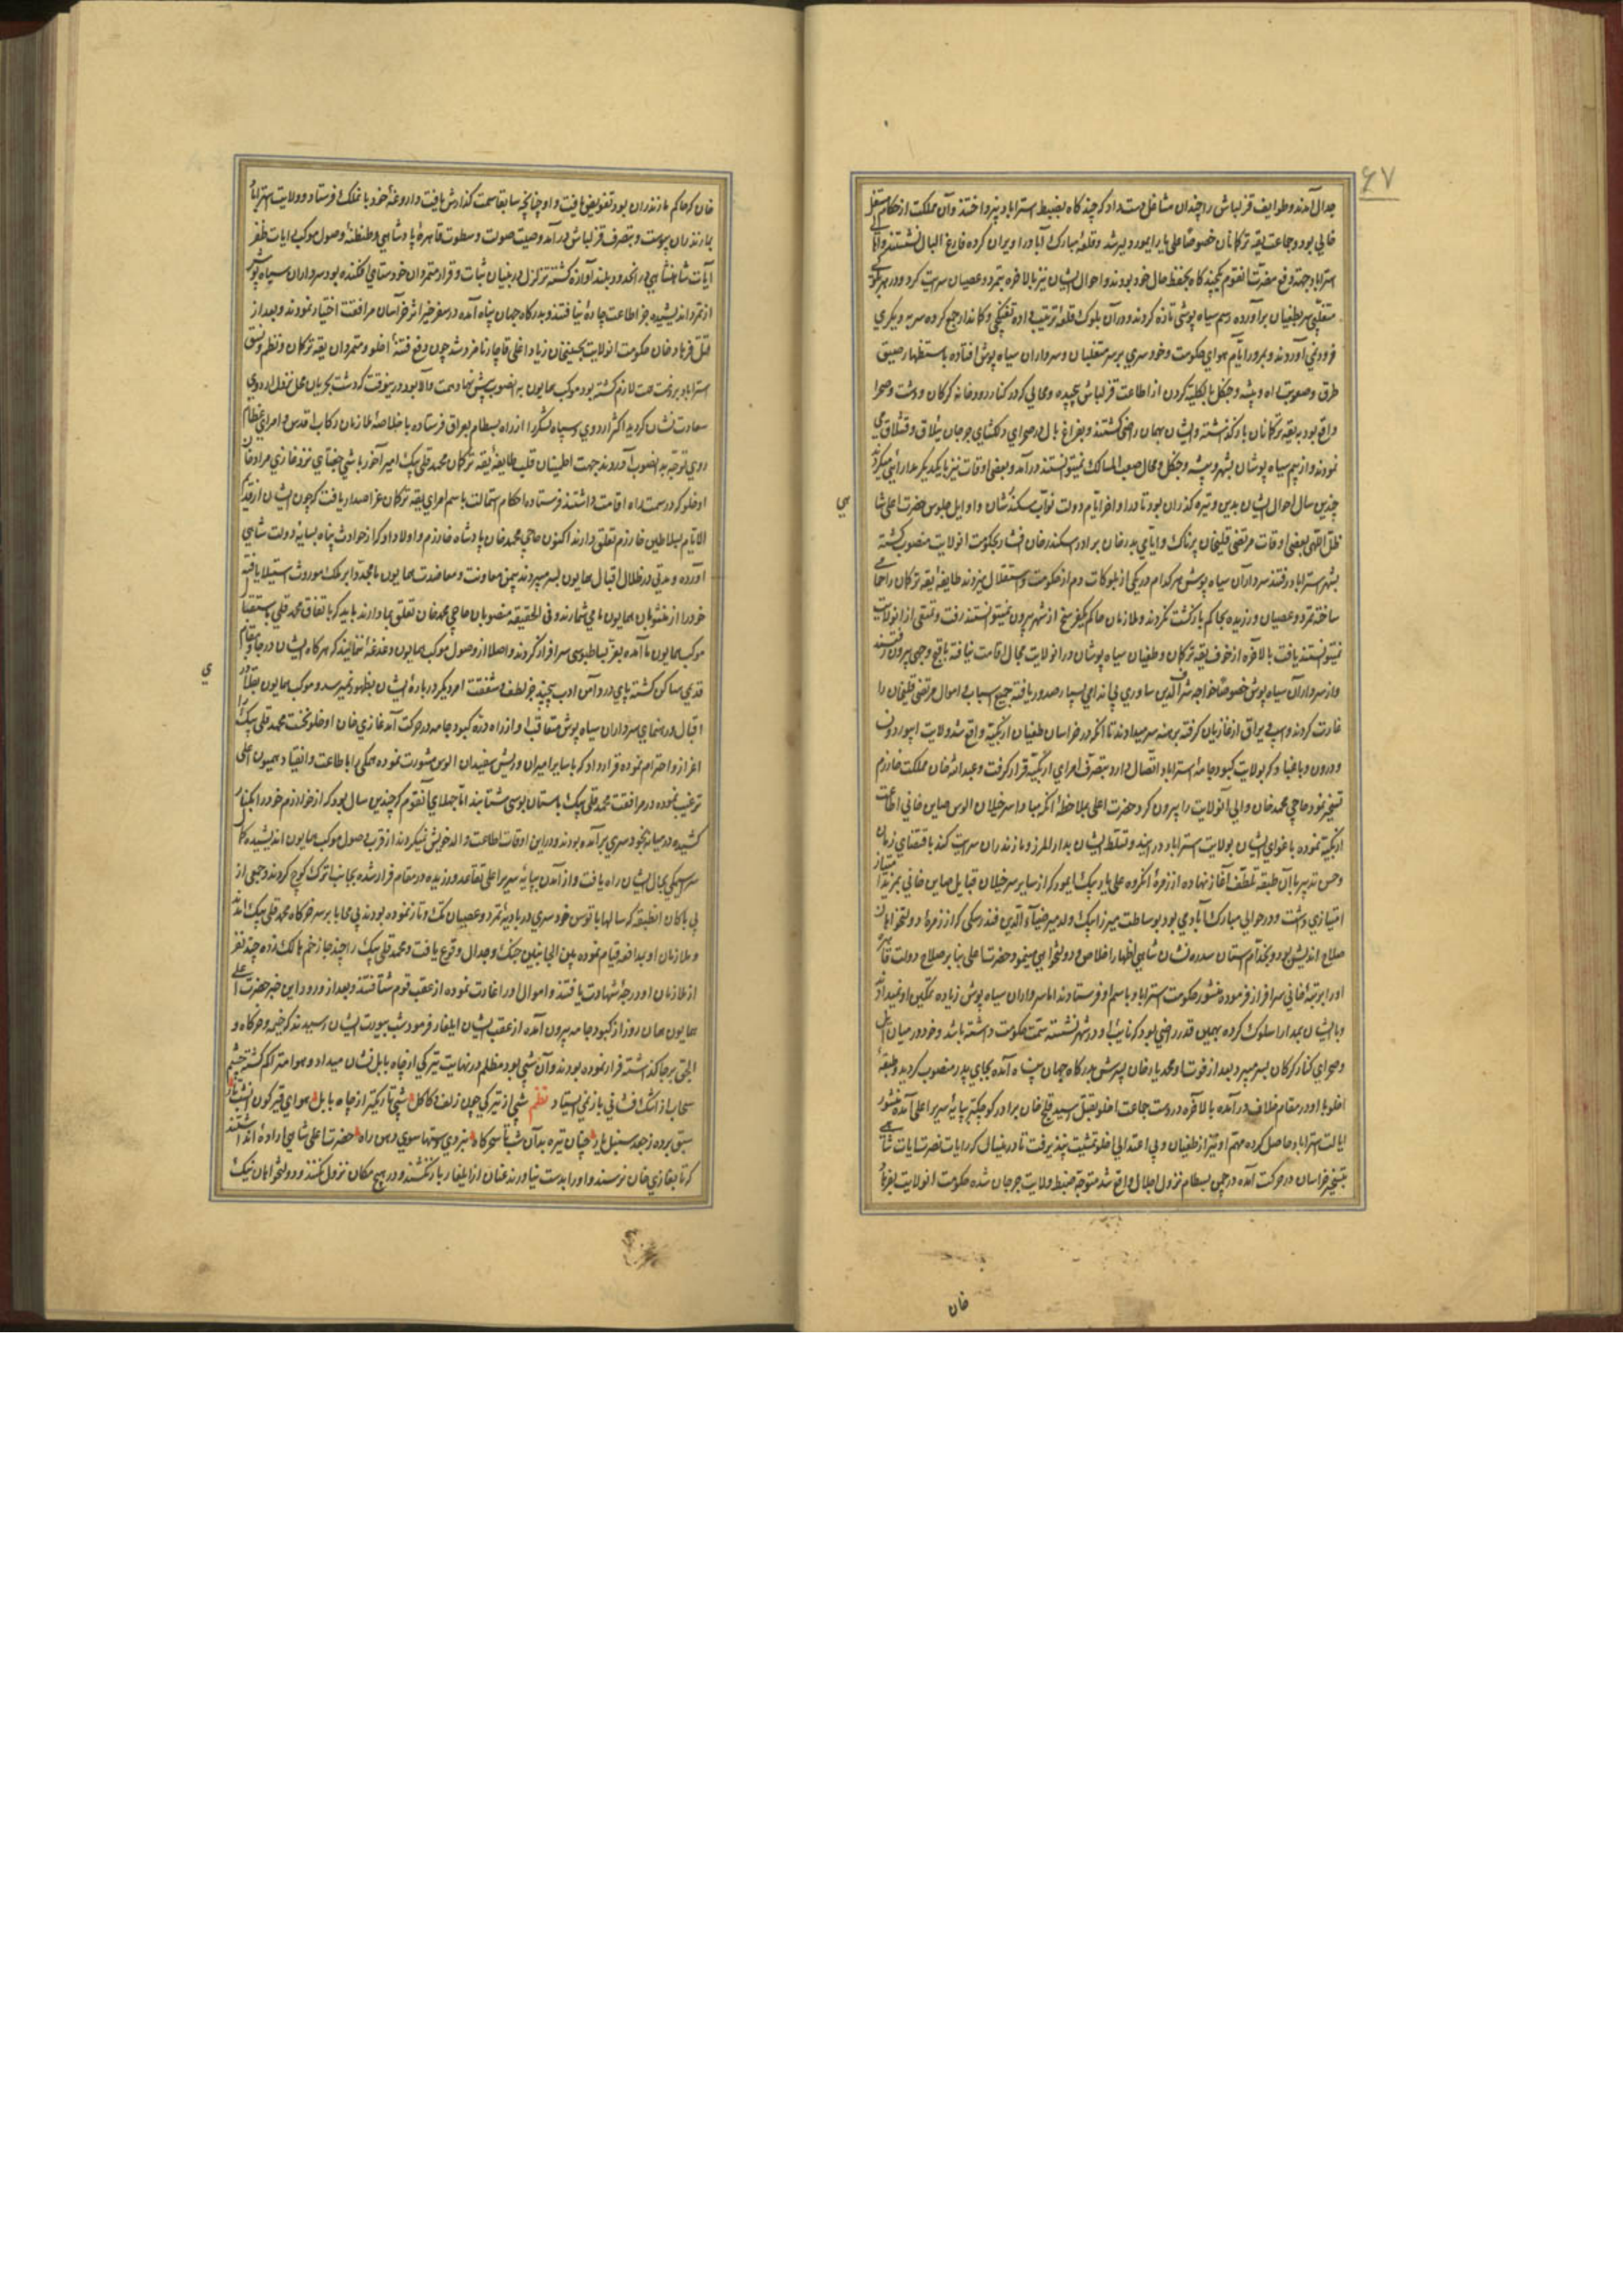 ۶۷
جدال آمدند و طوایف قزلباش را چندان مشاغل دست داد که چند کاه بضبط استراباد نپرداختند و آن مملکت از حکام مستقل
خالی بود و جماعت یقه ترکمانان خصوصا علی یار ایمور دلیر شد و قلعه مبارک آباد را ویران کرده فارغ البال نشستند و
استراباد جهة دفع مضرت آنقوم یکچند کاه بحفظ حال خود بودند و احوال ایشان نیز بالاخره بتمرد و عصیان سرایت کرد و در هر بلوک
متغلبی سر بطغیان برآورده رسم سیاه پوشی تازه کردند و در آن بلوک قلعه ترتیب داده تفنکچی و کاندار جمع کرده سر به دیکری
فرود نمی آوردند و بمرور ایام هوای حکومت و خودسری بر سر متغلبان و سرداران سیاه پوش افتاده باستظهار ضیق
طرق و صعوبت راه و بیشه و جنکل بالکلیه کردن از اطاعت قزلباش پیچیده و محالی که در کنار رودخانه کرکان و دشت و صحرا
واقع بود به یقه ترکمانان باز کذاشته و ایشان بهمان راضی کشتند و بفراغ بال در صحرای دلکشای جرجان ییلاق و قشلاق می
نمودند و از بیم سیاه پوشان بشهر و بیشه و جنکل و محال صعب المسالک نمیتوانستند درآمد و بعضی اوقات نیز با یکدیکر مدارائی میکردند
چندین سال احوال ایشان بدین وتیره کذران بود تا در اواخر ایام دولت نواب سکندرشان و اوایل جلوس حضرت اعلی شا
هی
ظل اللهی بعضی اوقات مرتضی قلیخان پرناک و اتامی بدرخان برادر اسکندرخان افشار بحکومت انولایت منصوب کشته
بشهر استراباد رفتند سرداران سیاه پوش هر کدام در یکی از بلوکات دم از حکومت و استقلال میزدند طایفه یقه ترکمان را حمامی
ساخته تمرد و عصیان ورزیده بحاکم بازکشت نکردند و ملازمان حاکم یکفرسخ از شهر بیرون نمیتوانستند رفت و تمتعی از انولایت
نمیتوانستند یافت بالاخره از خوف یقه ترکمان و طغیان سیاه پوشان در انولایت مجال اقامت نیافته باقبح وجهی بیرون رفتند
و از سرداران سیاه پوش خصوصا خواجه شرف الدین ساوری بی اندامی بسیار صدور یافته جمیع اسباب و اموال مرتضی قلیخان را
غارت کردند و اسب و یراق از غازیان کرفته برهنه سر میدادند تا انکه در خراسان طغیان ازبکیه واقع شد ولایت ابیورد و نسا
و درون و باغباد که بولایت کبود جامه استراباد اتصال دارد بتصرف امرای ازبکیه قرار کرفت و عبدالله خان مملکت خوارزم
تسخیر نمود حاجی محمد خان والی آنولایت را بیرون کرد حضرت اعلی بملاحظه انکه مبادا سرخیلان الوس صاین خانی اطاعت
ازبکیه نموده باغوای ایشان بولایت استراباد درآیند و تسلط ایشان بدار المرز و مازندران سرایت کند باقتضای زمان
و حسن تدبیر با آن طبقه تلطف آغاز نهاده از زمره انکروه علی یار بیک ایمور که از سایر سرخیلان قبایل صاین خانی بمزید امتیاز
امتیازی داشت و در حوالی مبارک آباد می بود بوساطت میرزا بیک ولد میر ضیاء الدین فندرسکی که از زمره دولتخواهان
صلاح اندیش بود و بخدام آستان سدره نشان شاهی اظهار اخلاص و دولتخواهی مینمود حضرت اعلی بنابر صلاح دولت قاهره
او را برتبه خانی سرافراز فرموده منشور حکومت استراباد باسم او فرستادند اما سرداران سیاه پوش زیاده تمکین او نمیدادند
و با ایشان بمدارا سلوک کرده بهمین قدر راضی بود که نایب او در شهر نشسته سمت حکومت داشته باشد و خود در میان ایل
و صحرای کنار کرکان بسر میبرد بعد از فوت او محمد یار خان پسرش بدرکاه جهان پناه آمده بجای پدر منصوب کردید و طبقه
اخلو با او در مقام خلاف درآمده بالاخره در دست جماعت اخلو بقتل رسید قلیج خان برادر کوچکتر بپایه سریر اعلی آمده منشور
ایالت استراباد حاصل کرده مهم او نیز از طغیان و بی اعتدالی اخلو تمشیت پذیر نرفت تا در ینسال که رایات نصرت آیات شاهی
بتسخیر خراسان در حرکت آمده در چمن بسطام نزول اجلال واقع شد متوجه ضبط ولایت جرجان شده حکومت انولایت بفرهاد
خان
خان که حاکم مازندران بود تفویض یافت و او چنانچه سابقا سمت کذارش یافت داروغه خود بانملک فرستاد و ولایت استراباد
بمازندران پیوست و بتصرف قزلباش درآمد و صیت صولت و سطوت قاهره پادشاهی و طنطنه وصول موکب رایات ظفر
آیات شاهنشاهی در انحدود بلند آوازه کشته تزلزل در بنیان ثبات و قرار متمردان خودستای افکنده بود سرداران سیاه پوش
از تمرد اندیشیده جز اطاعت چاره نیافتند و بدرکاه جهان پناه آمده در سفر خیر اثر خراسان مرافقت اختیار نمودند و بعد از
قتل فرهاد خان حکومت انولایت بحسینخان زیاد اغلی قاجار نامزد شد چون دفع فتنه اخلو و متمردان یقه ترکمان و نظم و نسق
استراباد بر ذمت همت لازم کشته بود موکب همایون به انصوب پیش نهاد همت والا بود در ینوقت که دشت بکریان محل نزول اردوی
سعادت نشان کردید اکثر اردوی و سپاه لشکر را از راه بسطام بعراق فرستاده با خلاصه ملازمان رکاب اقدس و امرای عظام
روی توجه به انصوب آوردند جهت اطمینان قلب طایفه یقه ترکمان محمد قلی بیک امیر آخور باشی جغتای نزد غازی مراد خان
اوخلو که در سمت راه اقامت داشتند فرستاده احکام استمالت باسم امرای یقه ترکمان عز اصدار یافت که چون ایشان از قدیم
الایام بسلاطین خوارزم تعلق دارند اکنون حاجی محمد خان پادشاه خوارزم و اولاد او که از حوادث پناه بسایه دولت شاهی
آورده و مدتی در ظلال اقبال همایون بسر میبردند بیمن معاونت و معاضدت همایون ما مجددا بر ملک موروث استیلا یافته
خود را از منسوبان همایون ما می شمارند و فی الحقیقه منصوبان حاجی محمد خان تعلق بما دارند باید که باتفاق محمد قلی باستقبال
موکب همایون ما آمده بعز بساطبوسی سرافراز کردند و اصلا از وصول موکب همایون دغدغه ننمایند که هر کاه ایشان در جا و مقام
قدیمی ساکن کشته پای در دامن ادب پیچند جز لطف و شفقت امر دیکر در باره ایشان بظهور نمیرسد و موکب همایون بقلاوز
ی
اقبال و رهنمای سرداران سیاه پوش متعاقب او از راه دره کبود جامه در حرکت آمد غازی خان اوخلو نخست محمد قلی بیک را
اعزاز و احترام نموده قرار داد که با سایر امیران و ریش سفیدان الوس مشورت نموده همکی را باطاعت و انقیاد همیون اعلی
ترغیب نموده در مرافقت محمد قلی بیک باستان بوسی شتابند اما جهلای آنقوم که چندین سال بود که از خوارزم خود را بکنار
کشیده در میانه بخودسری برآمده بودند و در این اوقات اطاعت والد خویش نمیکردند از قرب وصول موکب همایون اندیشیده کمال
سراسیمکی بحال ایشان راه یافت و از آمدن بپایه سریر اعلی تقاعد ورزیده در مقام فرار شده بجانب اترک کوچ کردند و جمعی از
بی باکان انطبقه که سالها با توسن خودسری در بادیه تمرد و عصیان تک و تاز نموده بودند بی محابا بر سر خرکاه محمد قلی بیک آمدند
و ملازمان او بمدافعه قیام نموده بین الجانبین جنک و جدال وقوع یافت و محمد قلی بیک را چند جا زخم هالک زده چند نفر
از ملازمان او درجه شهادت یافتند و اموال او را غارت نموده از عقب قوم شتافتند و بعد از ورود این خبر حضرت اعلی
همایون همان روز از کبود جامه بیرون آمده از عقب ایشان ایلغار فرمود شب بیورت ایشان رسیدند که خیمه و خرکاه و
الجق برجا کذاشته فرار نموده بودند و آن شبی بود مظلم در نهایت تیرکی از چاه بابل نشان میداد و هوا متراکم کشته چشم
سحاب از اشک افشانی باز نمی ایستاد نظم شبی از تیرکی چون زلف و کاکل شبی تاریکتر از چاه بابل هوای قیرکون انشب تار
سبق برده ز جعد سنبل یار چنان تیره بد آن شب تا سحرکاه نبردی سوتها سوی دهن راه حضرت اعلی شاهی اراده آن داشتند
که تا بغازی خان نرسند و او را بدست نیاورند عنان از ایلغار باز نکشند و در هیچ مکان نزول نکنند و دولتخواهان نیک